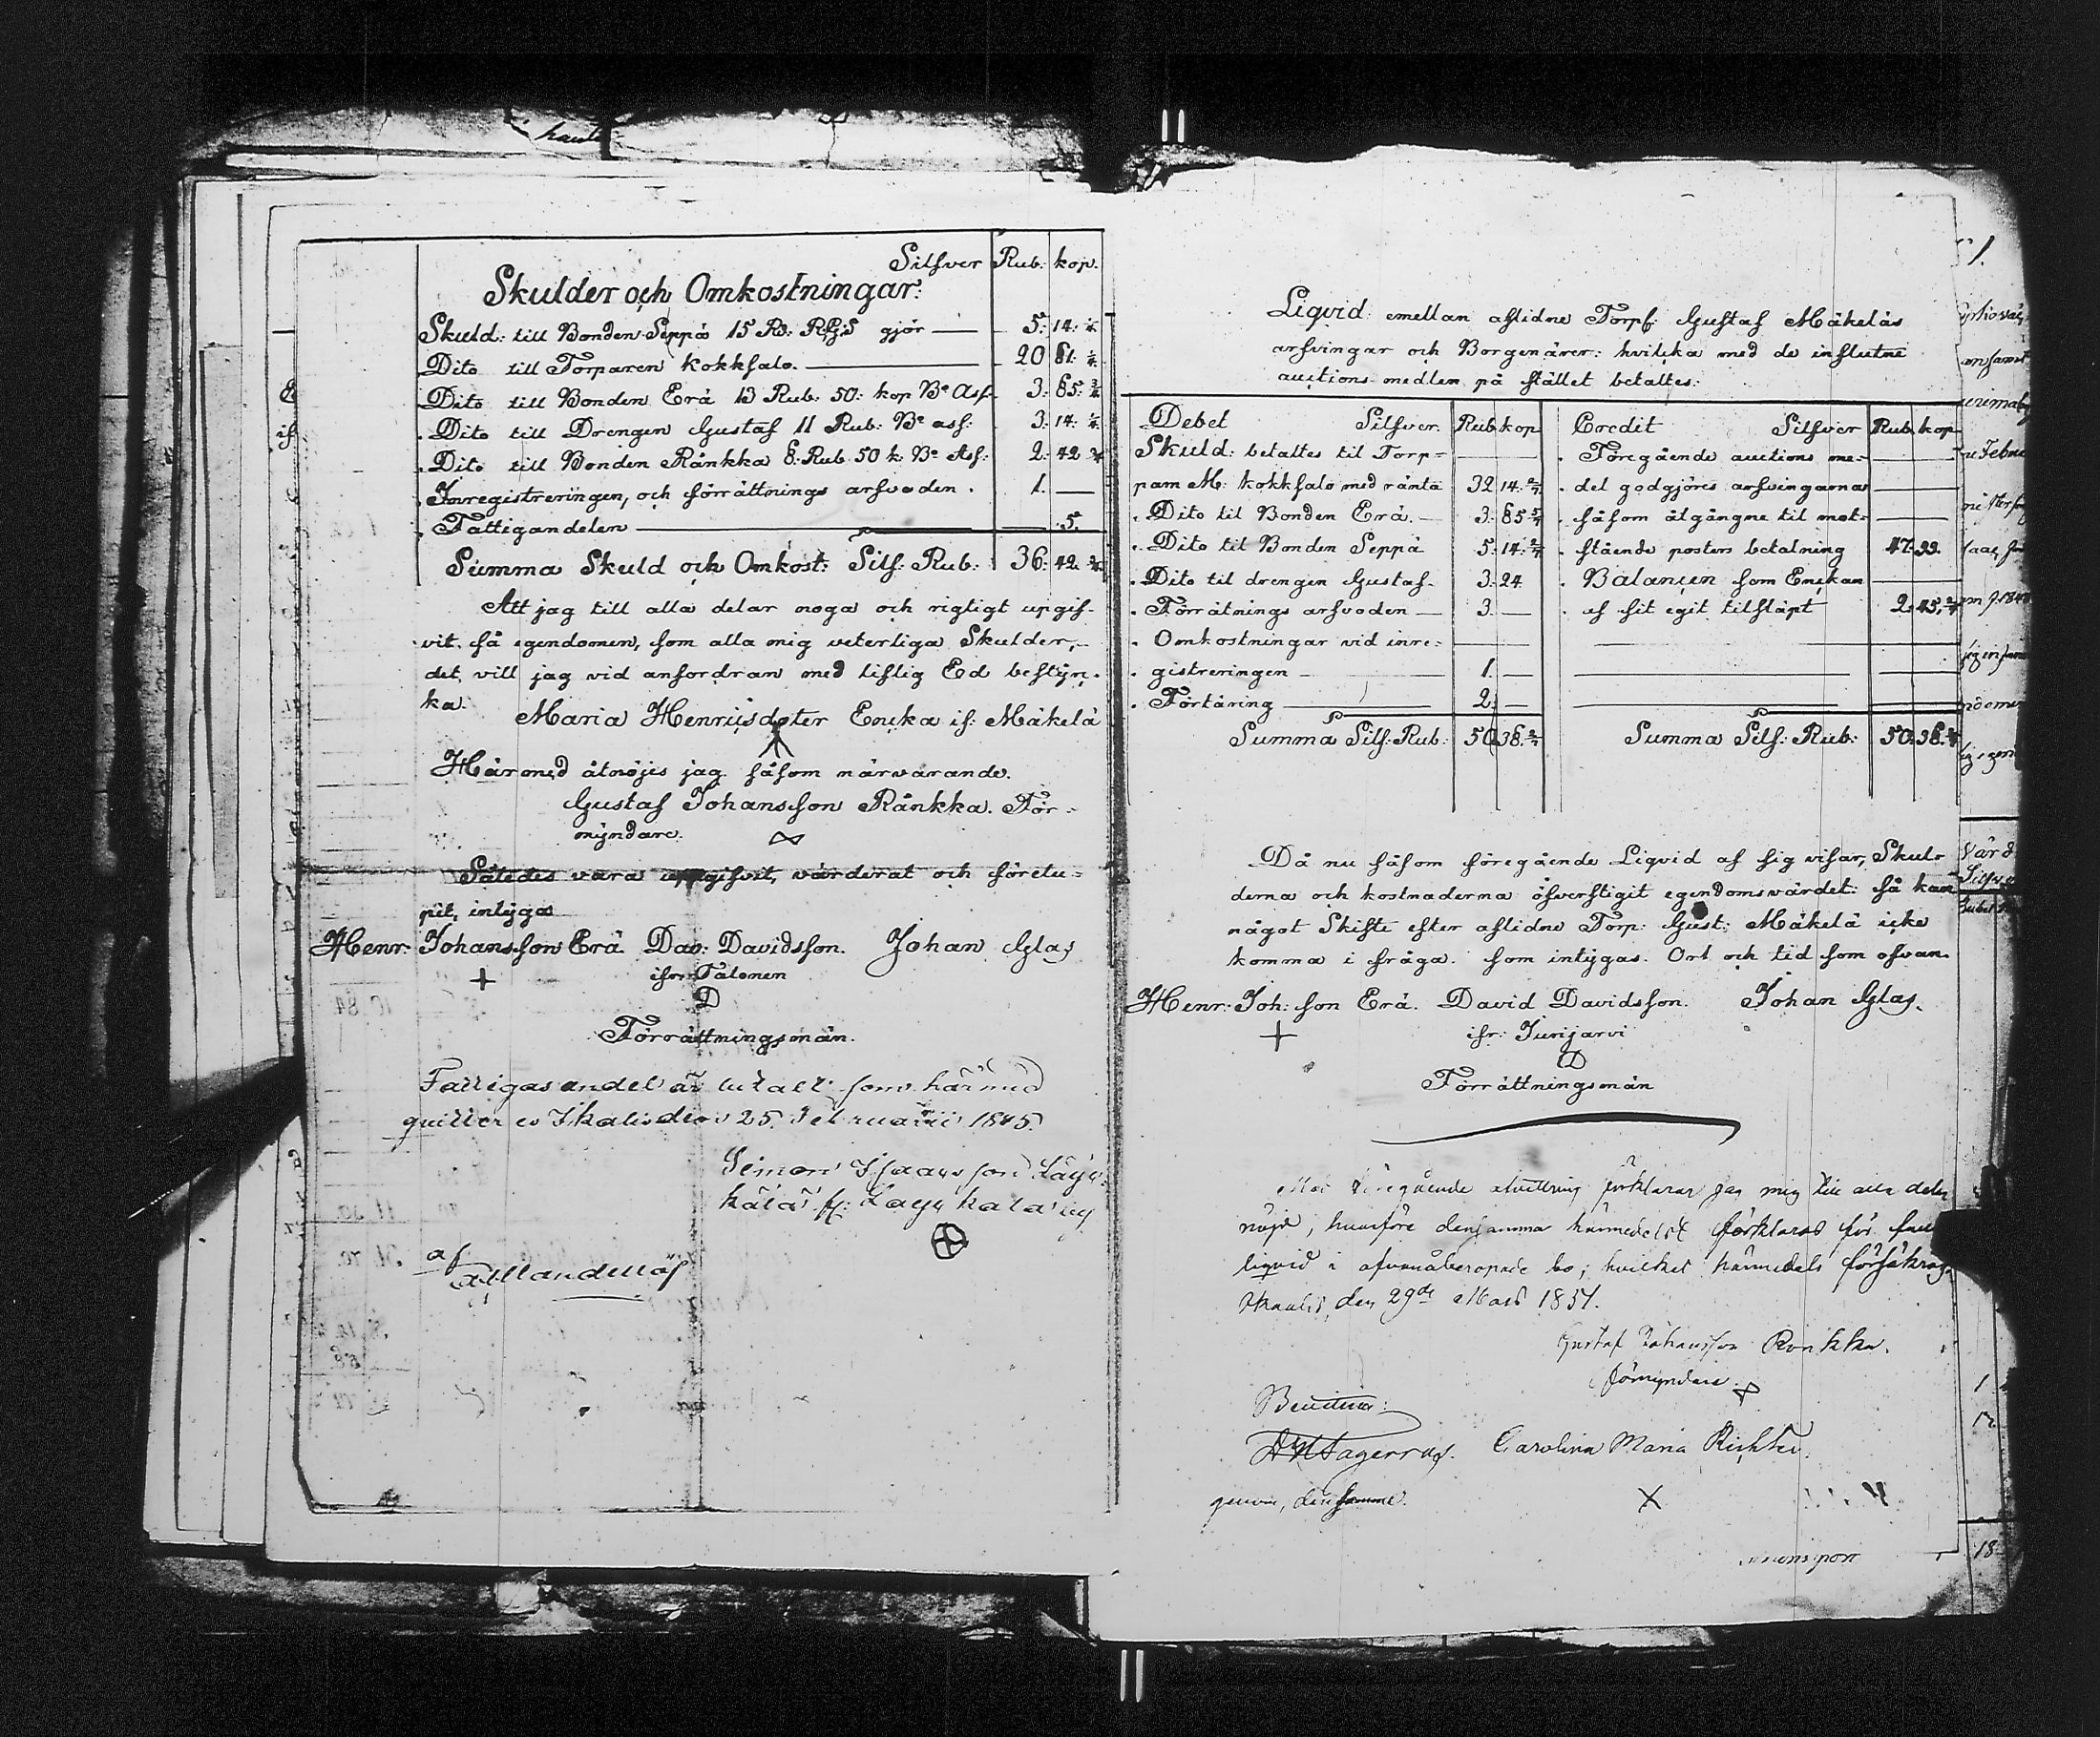 Silfver Rub: kop.
Skulder och Omkostningar:
Skuld: till Bonden Seppä 15 Ro: Rgs gjör 5: 14. 2/7
Dito till Torparen Kokksalo. 20 81.
Dito till Bonden Erä 13 Rub: 50: kop Bo Ass. 3: 85. 5/7
Dito till Drengen Gustaf 11 Rub: Bo ass: 3: 14. 2/7
Dito till Bonden Ränkka 8: Rub 50 k Bo Ass: 2: 42
Inregistreringen, och förrättnings arfvoden. 1.
Fattigandelen 5.
Summa Skuld och Omkost: Silf: Rub: 36: 42.
Att jag till alla delar noga och rigtigt upgif-
vit. så egendomen, som alla mig veterliga Skulder,
det vill jag vid anfordran med liflig Ed bestyr-
ka.
Maria Henriisdoter Enka if: Mäkelä
Härmed åtnöjes jag såsom närvarande.
Gustaf Johansson Ränkka. För-
myndare.
Således vara upgifvit, värderat och företu-
pit, intygas
Henr: Johansson Erä Dav: Davidsson. Johan Glas
ifrån Talonen
D
Förrättningsmän.
Fattigas andel är betalt som härmed
quitteres Ikalis den 25. Februarii 1845.
Simon Isaacsson Läyk
kälä fr: Läykkälä by
af
1.
Liqvid: emellan aflidne Torp: Gustaf Mäkeläs
arfvingar och Borgenärer: hvilcka med de influtne
auctions medlen på stället betaltes:
Debet Silfver. Rub kop Credit Silfver Rub. kop
Skuld: betaltes til Torp= Föregående auctions me=
paren M: kokksalo med ränta 32 14. 2/7 del godgjöres arfvingarnas
Dito til Bonden Erä. 3: 85 5/7 såsom åtgångne til mot=
Dito til Bonden Seppä 5. 14. 2/7 stående posters betalning 47. 93.
Dito til drengen Gustaf 3: 24 Balancen som Enckan
Förrätnings arfvoden 3. af sit egit tilsläpt 2. 45. 2/7
Omkostningar vid inre=
gistreringen 1.
Förtäring 2.
Summa Silf: Rub: 50 38. 2/7 Summa Silf: Rub: 50. 38. 2/7
Då nu såsom föregående Liqvid af sig visar, Skul-
derna och kostnaderna öfverstigit egendomsvärdet: så kan
något Skifte efter aflidne Torp: Gust: Mäkelä icke
komma i fråga. som intygas. Ort och tid som ofvan.
Henr: Joh: son Erä. David Davidsson. Johan Glas.
ifr: Jurijarvi
D
Förrättningsmän
Med föregående utredning förklarar jag mig till alla delar
nöjd, hvarföre densamma härmedelst förklaras för full
liqvid i ofvanåberopade bo; hvilket härmedels försäkras
Ikalis, den 29de Mars 1851.
Gustaf Johansson Rankka.
förmyndare.
Bevittna:
Carolina Maria Richter.
genom, densamme.